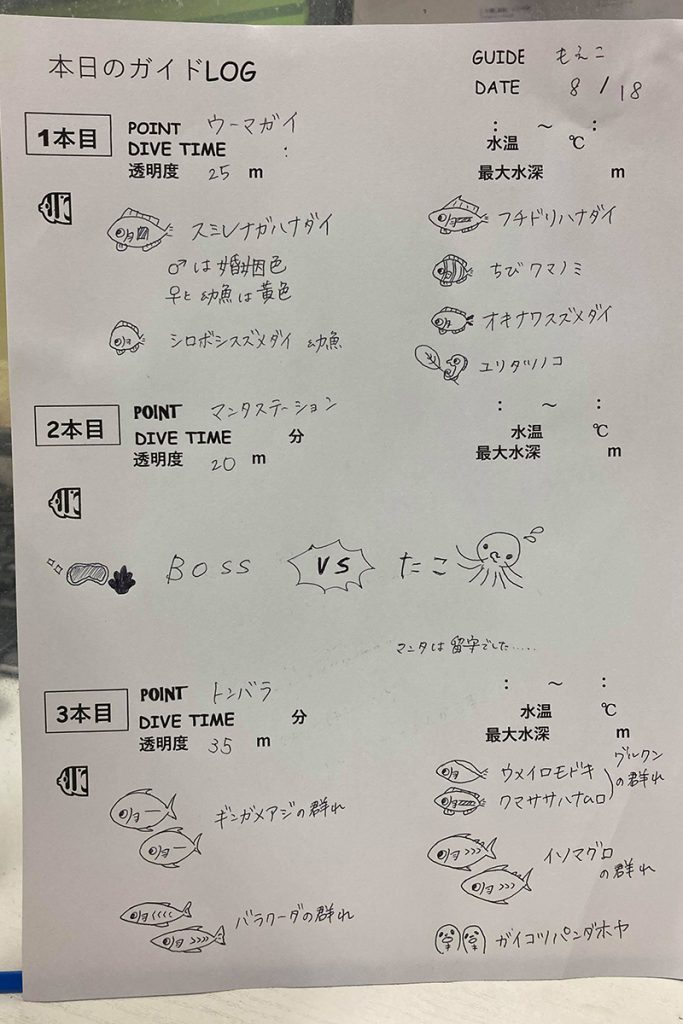 本日のガイドLOG
GUIDE もえこ
DATE 8/18
1本目
POINT ウーマガイ
DIVE TIME :
透明度 25 m
: ~ :
水温 ℃
最大水深 m
スミレナガハナダイ
♂は婚姻色
♀と幼魚は黄色
シロボシスズメダイ 幼魚
フチドリハナダイ
ちびクマノミ
オキナワスズメダイ
ユリタツノコ
2本目
POINT マンタステーション
DIVE TIME 分
透明度 20 m
: ~ :
水温 ℃
最大水深 m
BOSS VS たこ
マンタは留守でした.....
3本目
POINT トンバラ
DIVE TIME 分
透明度 35 m
: ~ :
水温 ℃
最大水深 m
ギンガメアジの群れ
バラクーダの群れ
ウメイロモドキ
クマササハナムロ
グルクン
の群れ
イソマグロ
の群れ
ガイコツパンダホヤ